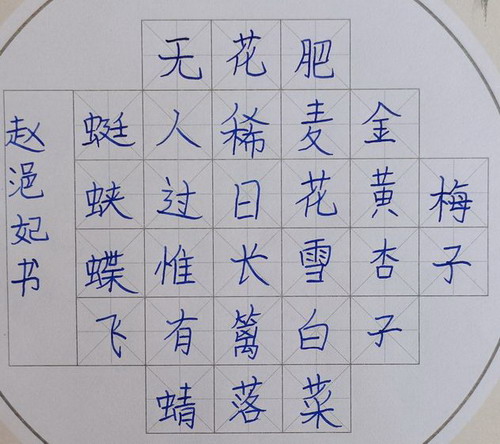 梅子
金黄杏子
肥麦花雪白菜
花稀日长篱落
无人过惟有蜻
蜓蛱蝶飞
赵浥妃书